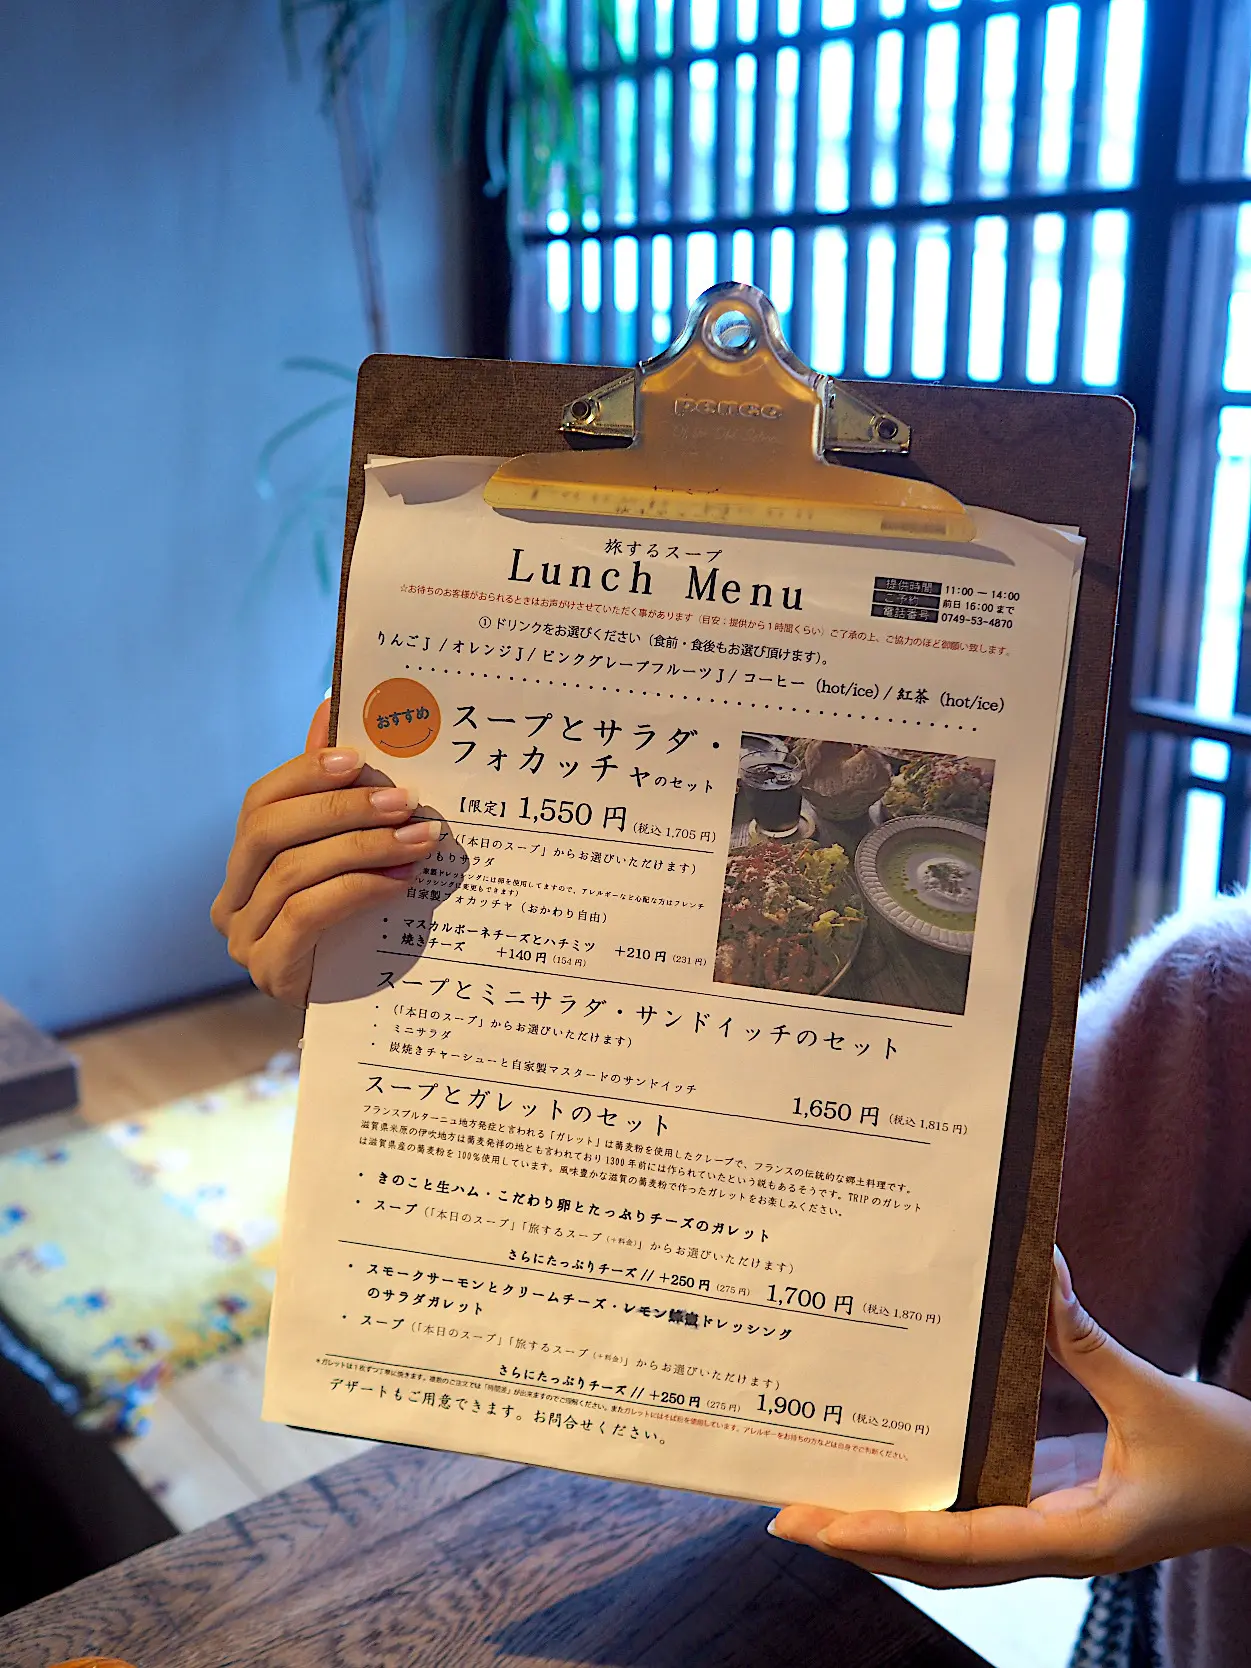 penco
旅するスープ
Lunch Menu
提供時間 11:00 ― 14:00
ご予約 前日 16:00 まで
電話番号 0749-53-4870
☆お待ちのお客様がおられるときはお声がけさせていただく事があります（目安：提供から１時間くらい）ご了承の上、ご協力のほど御願い致します。
① ドリンクをお選びください（食前・食後もお選び頂けます）。
りんごJ / オレンジJ / ピンクグレープフルーツJ / コーヒー（hot/ice) / 紅茶（hot/ice)
おすすめ
スープとサラダ・
フォカッチャのセット
【限定】1,550 円（税込 1,705 円）
プ（「本日のスープ」からお選びいただけます）
もりサラダ
家製ドレッシングには卵を使用してますので、アレルギーなど心配な方はフレンチ
レッシングに変更もできます）
自家製フォカッチャ（おかわり自由）
・ マスカルポーネチーズとハチミツ +210 円（231 円）
・ 焼きチーズ +140 円（154 円）
スープとミニサラダ・サンドイッチのセット
・ （「本日のスープ」からお選びいただけます）
・ ミニサラダ
・ 炭焼きチャーシューと自家製マスタードのサンドイッチ
1,650 円（税込 1,815 円）
スープとガレットのセット
フランスブルターニュ地方発症と言われる「ガレット」は蕎麦粉を使用したクレープで、フランスの伝統的な郷土料理です。
滋賀県米原の伊吹地方は蕎麦発祥の地とも言われており1300 年前には作られていたという説もあるそうです。TRIP のガレット
は滋賀県産の蕎麦粉を 100％使用しています。風味豊かな滋賀の蕎麦粉で作ったガレットをお楽しみください。
・ きのこと生ハム・こだわり卵とたっぷりチーズのガレット
・ スープ（「本日のスープ」「旅するスープ（+料金）」からお選びいただけます）
さらにたっぷりチーズ // +250 円（275 円） 1,700 円（税込 1,870 円）
・ スモークサーモンとクリームチーズ・レモン ドレッシング
のサラダガレット
・ スープ（「本日のスープ」「旅するスープ（+料金）」からお選びいただけます）
さらにたっぷりチーズ // +250 円（275 円） 1,900 円（税込 2,090 円）
*ガレットは１枚ずつ丁寧に焼きます。複数のご注文では「時間差」が出来ますのでご理解ください。またガレットにはそば粉を使用しています。アレルギーをお持ちの方などは自身でご判断ください。
デザートもご用意できます。お問合せください。